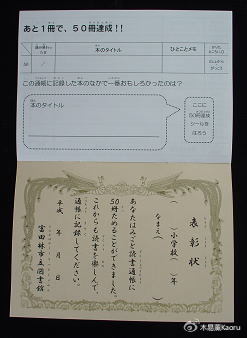 あと1冊で、50冊達成!!
本のタイトル
ひとことメモ
50
この通帳に記録した本のなかで一番おもしろかったのは?
本のタイトル
ここに
50冊達成
シールを
はろう
表彰状
(　)小学校(　)年
なまえ(　)
あなたはみごと読書通帳に
50冊ためることができました。
これからも読書を楽しんで、
通帳に記録してください。
平成　年　月　日
富田林市立図書館
木易薰Kaoru